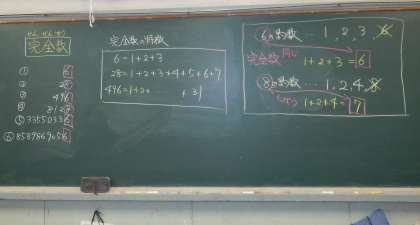 かん ぜん すう
完全数
① 6
② 28
③ 496
④ 8128
⑤ 33550336
⑥ 8589869056
完全数の特徴
6=1+2+3
28=1+2+3+4+5+6+7
496=1+2+…… +31
⑥の約数 … 1, 2, 3, 6
同じ
完全数 1+2+3=6
⑧の約数 … 1, 2, 4, 8
1+2+4=7